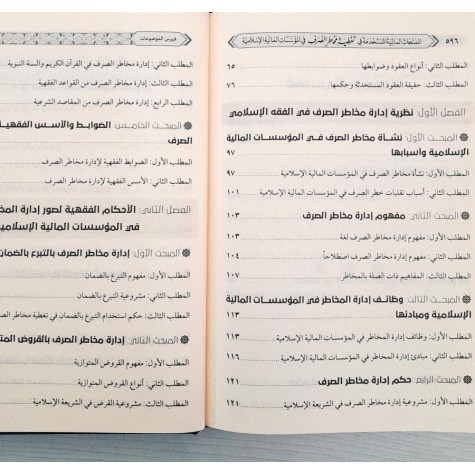 ٥٩٦ المنتجات المالية المستخدمة في تغطية مخاطر الصرف في المؤسسات المالية الإسلامية
المطلب الثاني: أنواع العقود وضوابطها ٦٥
المطلب الثالث: حقيقة العقود المستحدثة وحكمها ٧٦
الفصل الأول: نظرية إدارة مخاطر الصرف في الفقه الإسلامي
المبحث الأول: نشأة مخاطر الصرف في المؤسسات المالية
الإسلامية وأسبابها ٩٧
المطلب الأول: نشأة مخاطر الصرف في المؤسسات المالية الإسلامية ٩٧
المطلب الثاني: أسباب تقلبات خطر الصرف في المؤسسات المالية الإسلامية ١٠١
المبحث الثاني: مفهوم إدارة مخاطر الصرف ١٠٣
المطلب الأول: مفهوم إدارة مخاطر الصرف لغة ١٠٣
المطلب الثاني: مفهوم إدارة مخاطر الصرف اصطلاحاً ١٠٤
المطلب الثالث: المفاهيم ذات الصلة بالمخاطر ١٠٧
المبحث الثالث: وظائف إدارة المخاطر في المؤسسات المالية
الإسلامية ومبادئها ١١٣
المطلب الأول: وظائف إدارة المخاطر في المؤسسات المالية الإسلامية ١١٣
المطلب الثاني: مبادئ إدارة المخاطر في المؤسسات المالية الإسلامية ١١٦
المبحث الرابع: حكم إدارة مخاطر الصرف ١٢١
المطلب الأول: مشروعية إدارة مخاطر الصرف في الشريعة الإسلامية ١٢١
فهرس الموضوعات
المطلب الثاني: إدارة مخاطر الصرف في القرآن الكريم والسنة النبوية
المطلب الثالث: إدارة مخاطر الصرف من القواعد الفقهية
المطلب الرابع: إدارة مخاطر الصرف من المقاصد الشرعية
المبحث الخامس: الضوابط والأسس الفقهية
الصرف
المطلب الأول: الضوابط الفقهية لإدارة مخاطر الصرف
المطلب الثاني: الأسس الفقهية لإدارة مخاطر الصرف
الفصل الثاني: الأحكام الفقهية لصور إدارة
في المؤسسات المالية الإسلامية
المبحث الأول: إدارة مخاطر الصرف بالتبرع بالضمان
المطلب الأول: مفهوم التبرع بالضمان
المطلب الثاني: مشروعية التبرع بالضمان
المطلب الثالث: حكم استخدام التبرع بالضمان في تغطية مخاطر الصرف
المبحث الثاني: إدارة مخاطر الصرف بالقروض
المطلب الأول: مفهوم القروض المتوازية
المطلب الثاني: أنواع القروض المتوازية
المطلب الثالث: مشروعية القرض في الشريعة الإسلامية